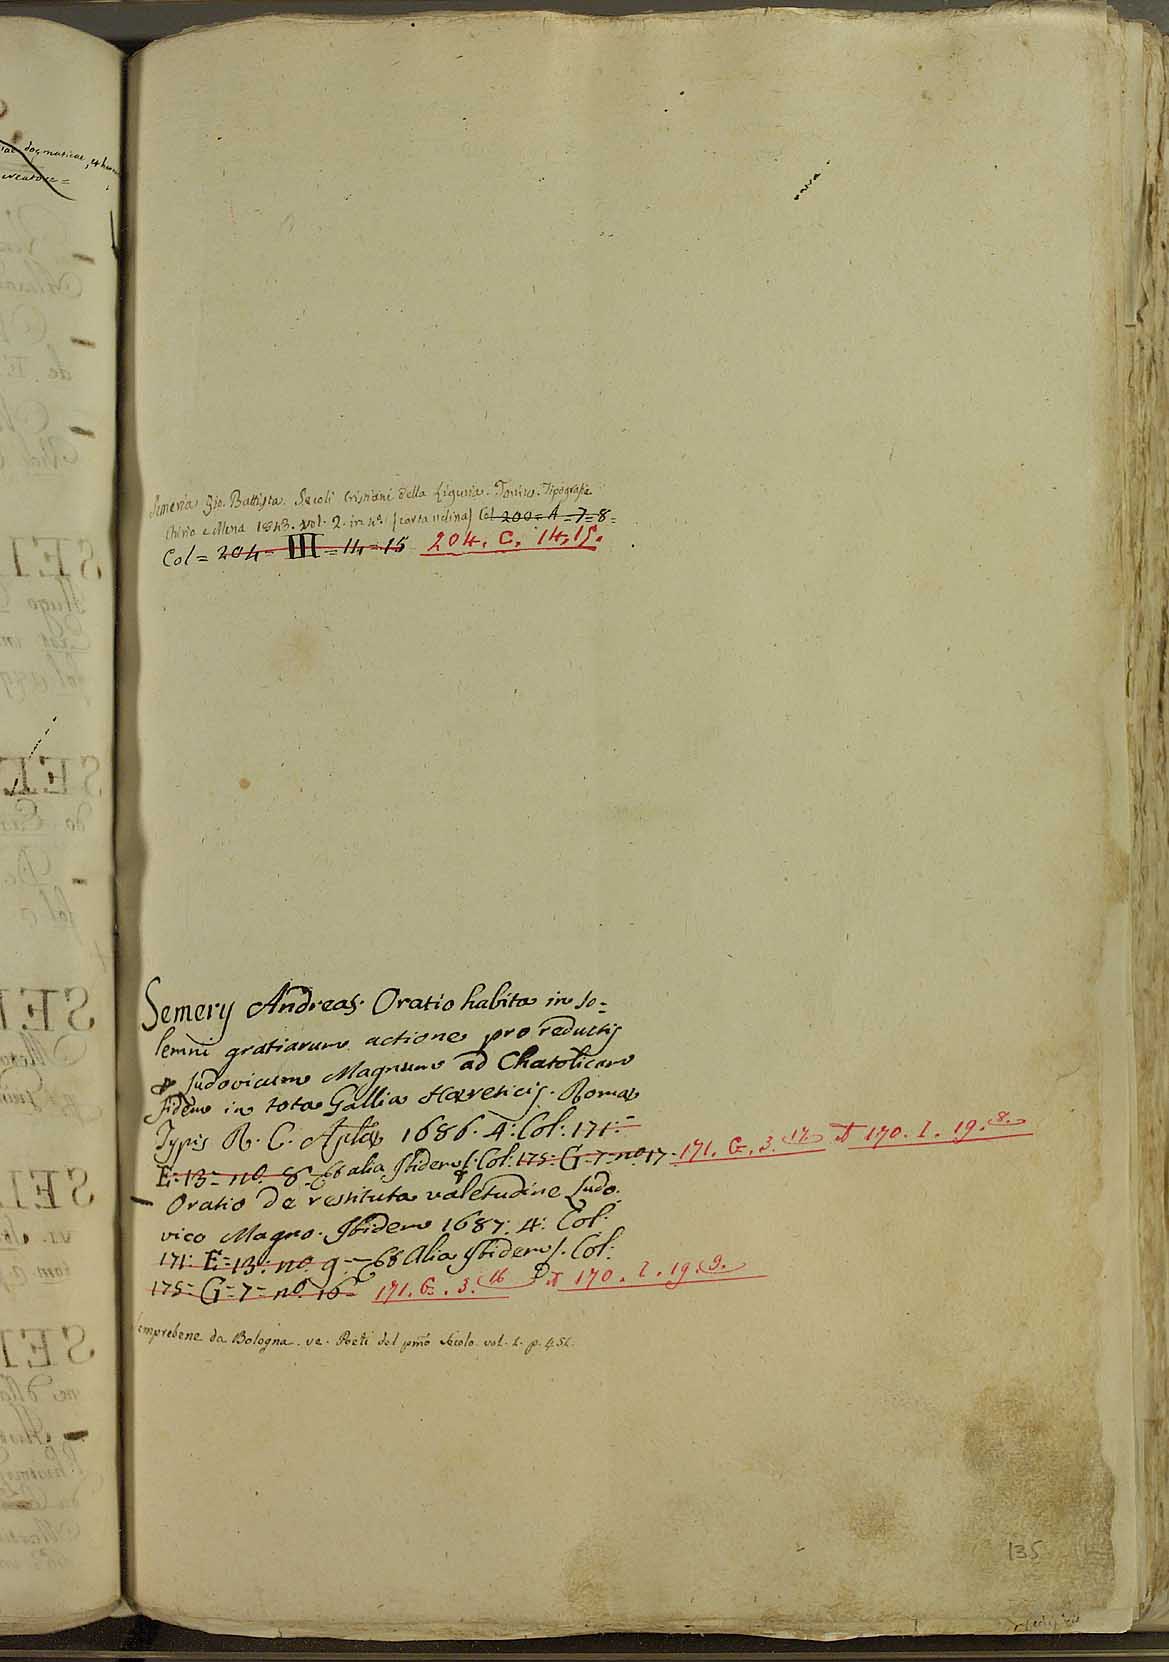 dogmaticae, et
Semeria Gio. Battista. Secoli Cristiani della Liguria. Torino. Tipografia
Chirio e Mina 1843. vol. 2. in 4º. (carta velina) Col 200 = A = 7 = 8 =
Col = 204 = III = 14 = 15 204. C. 14. 15.
Semery Andreas. Oratio habita in so=
lemni gratiarum actione pro reductis
Ludovicum Magnum ad Chatolicam
fidem in tota Gallia Hæreticis. Romæ
Typis R. C. Aplæ 1686. 4: Col: 171: =
E = 13 = nº. 8 = 66 alia Ibidem. Col: 175 = G = 7 = nº 17 = 171. G. 3. 17. et 170. I. 19. 8.
— Oratio de restituta valetudine Ludo.
vico Magno. Ibidem 1687. 4: Col:
171: E = 13: nº. 9 = 68 Alia Ibidem. Col:
175 = G = 7 = nº 16 = 171. G. 3. 16 et 170. I. 19. 9.
Semprebene da Bologna. ve. Poeti del pmo Secolo. vol. 1. p. 451.
135